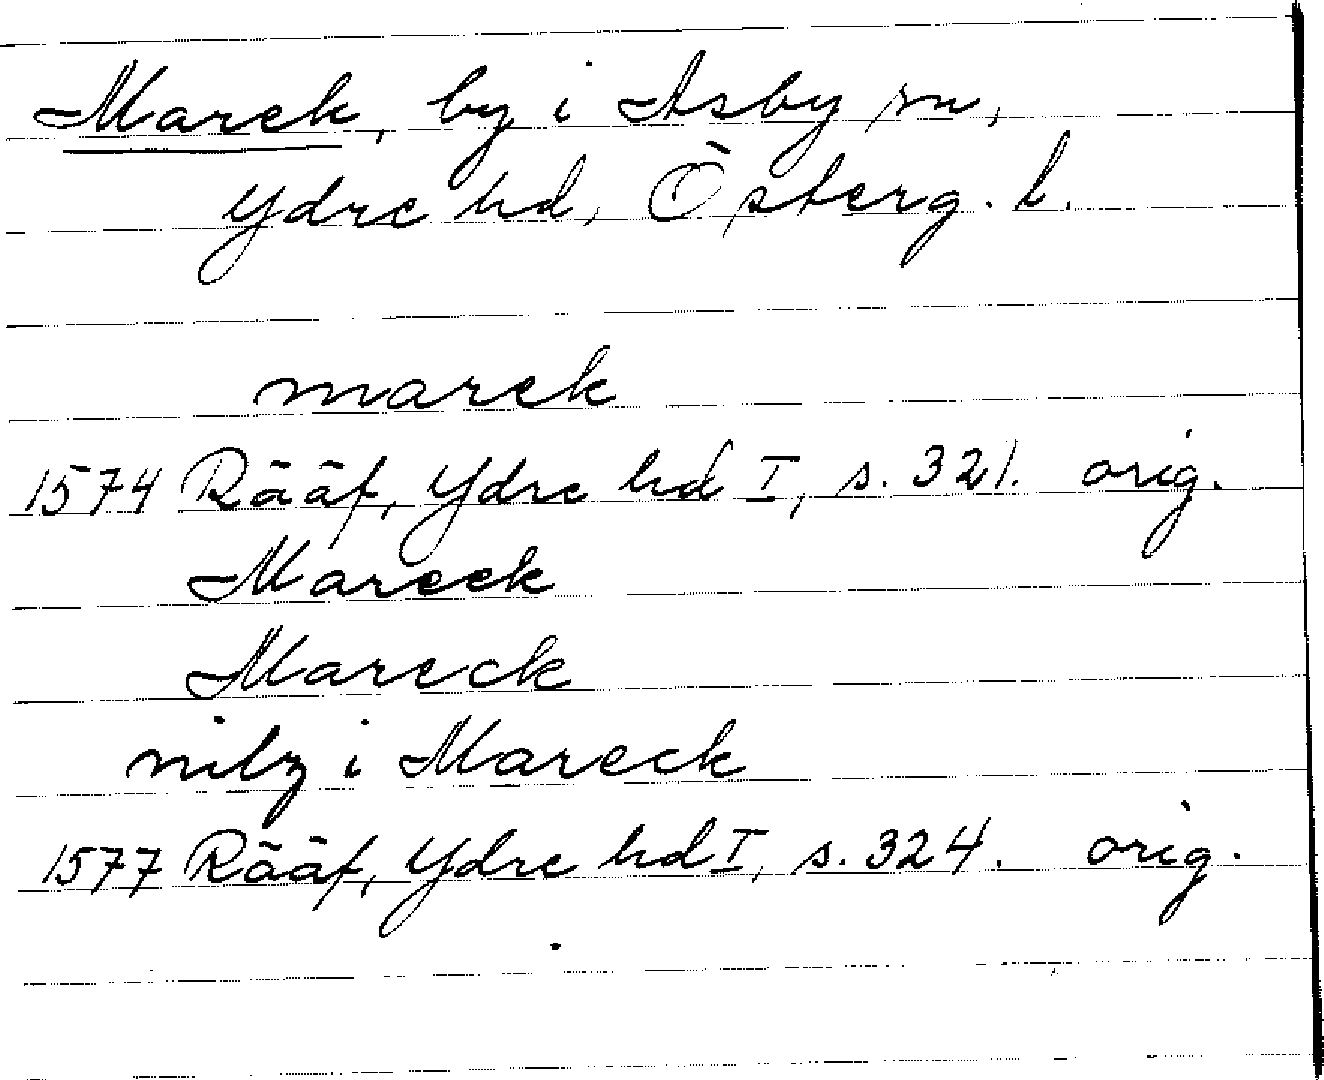 Marek, by i Asby sn,
Ydre hd, Österg. l.
marek
1574 Rääf, Ydre hd I, s. 321. orig.
Mareek
Mareck
nilz i Mareck
1577 Rääf, Ydre hd I, s. 324. orig.